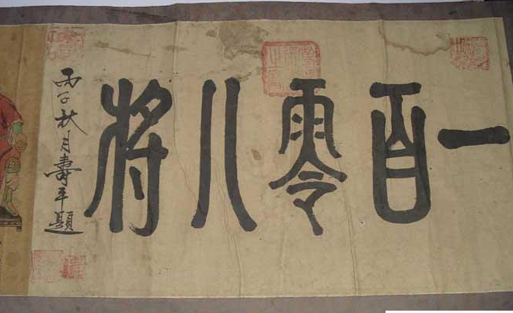 一百零八将
丙子秋月壽平題